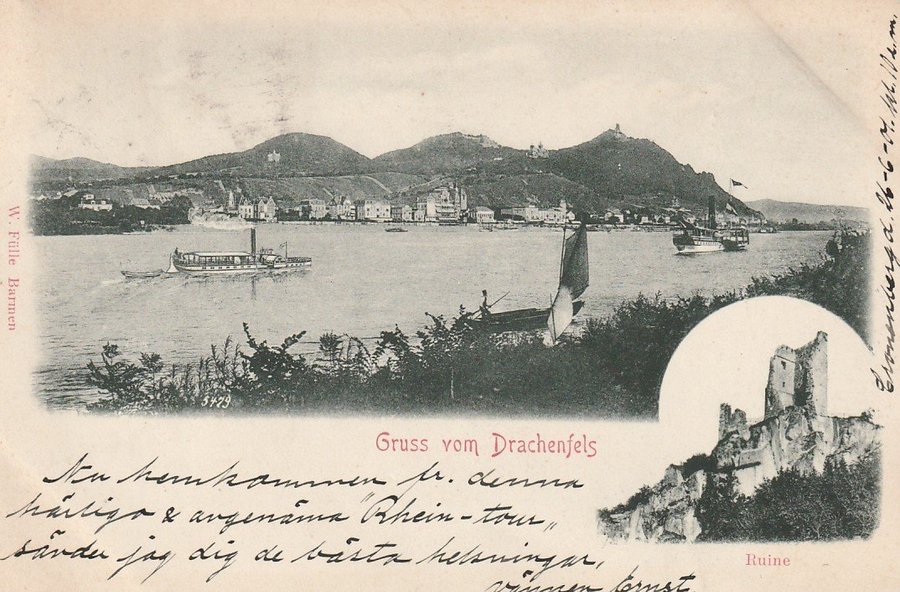 W. Fülle Barmen
5479
Gruss vom Drachenfels
Ruine
Nu hemkommen fr. denna
härliga & angenäma "Rhein-tour"
sänder jag dig de bästa helsningar,
vännen Ernst
Cronenberg d. 26-6-01.